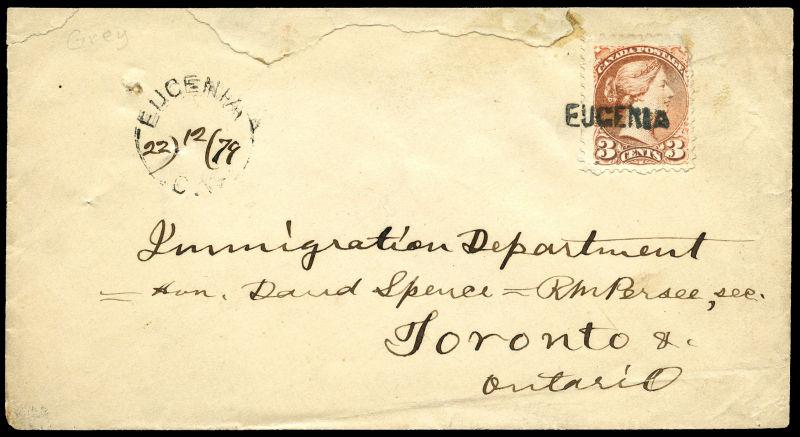 Grey
EUGENIA
22) 12 (79
C.W.
CANADA POSTAGE
EUGENIA
3 CENTS 3
Immigration Department
= Hon. David Spence = RMPersee, sec.
Toronto &.
Ontario